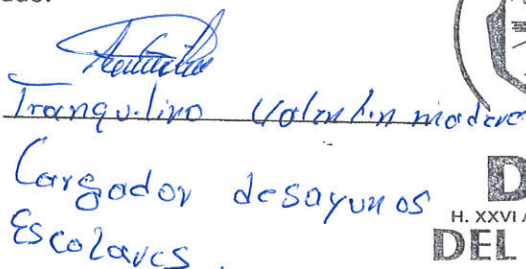 Tranquilino Valentin madere
Cargador desayunos
Escolares.
D
H. XXVI A
DEL